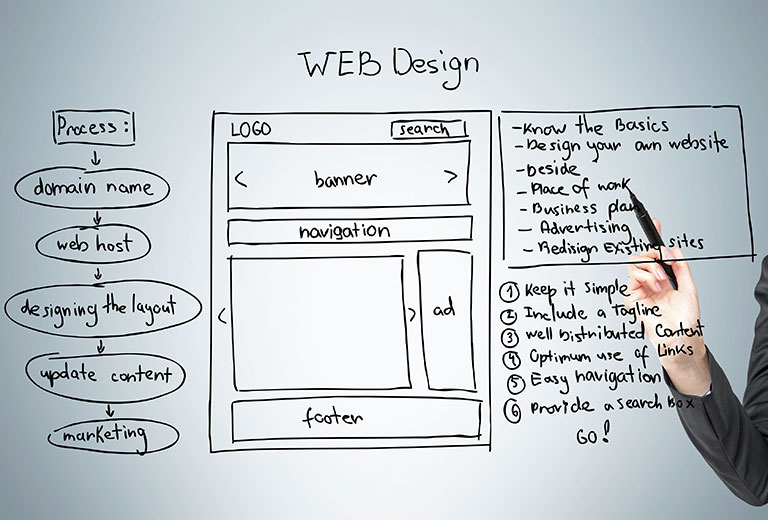 WEB Design
Process:
domain name
web host
designing the layout
update content
marketing
LOGO
search
< banner >
navigation
< >
ad
footer
-Know the Basics
-Design your own website
-beside
-Place of work
-Business plan
-Advertising
-Redisign Existing sites
1 Keep it simple
2 Include a Tagline
3 Well Distributed Content
4 Optimum use of Links
5 Easy navigation
6 Provide a search Box
GO!